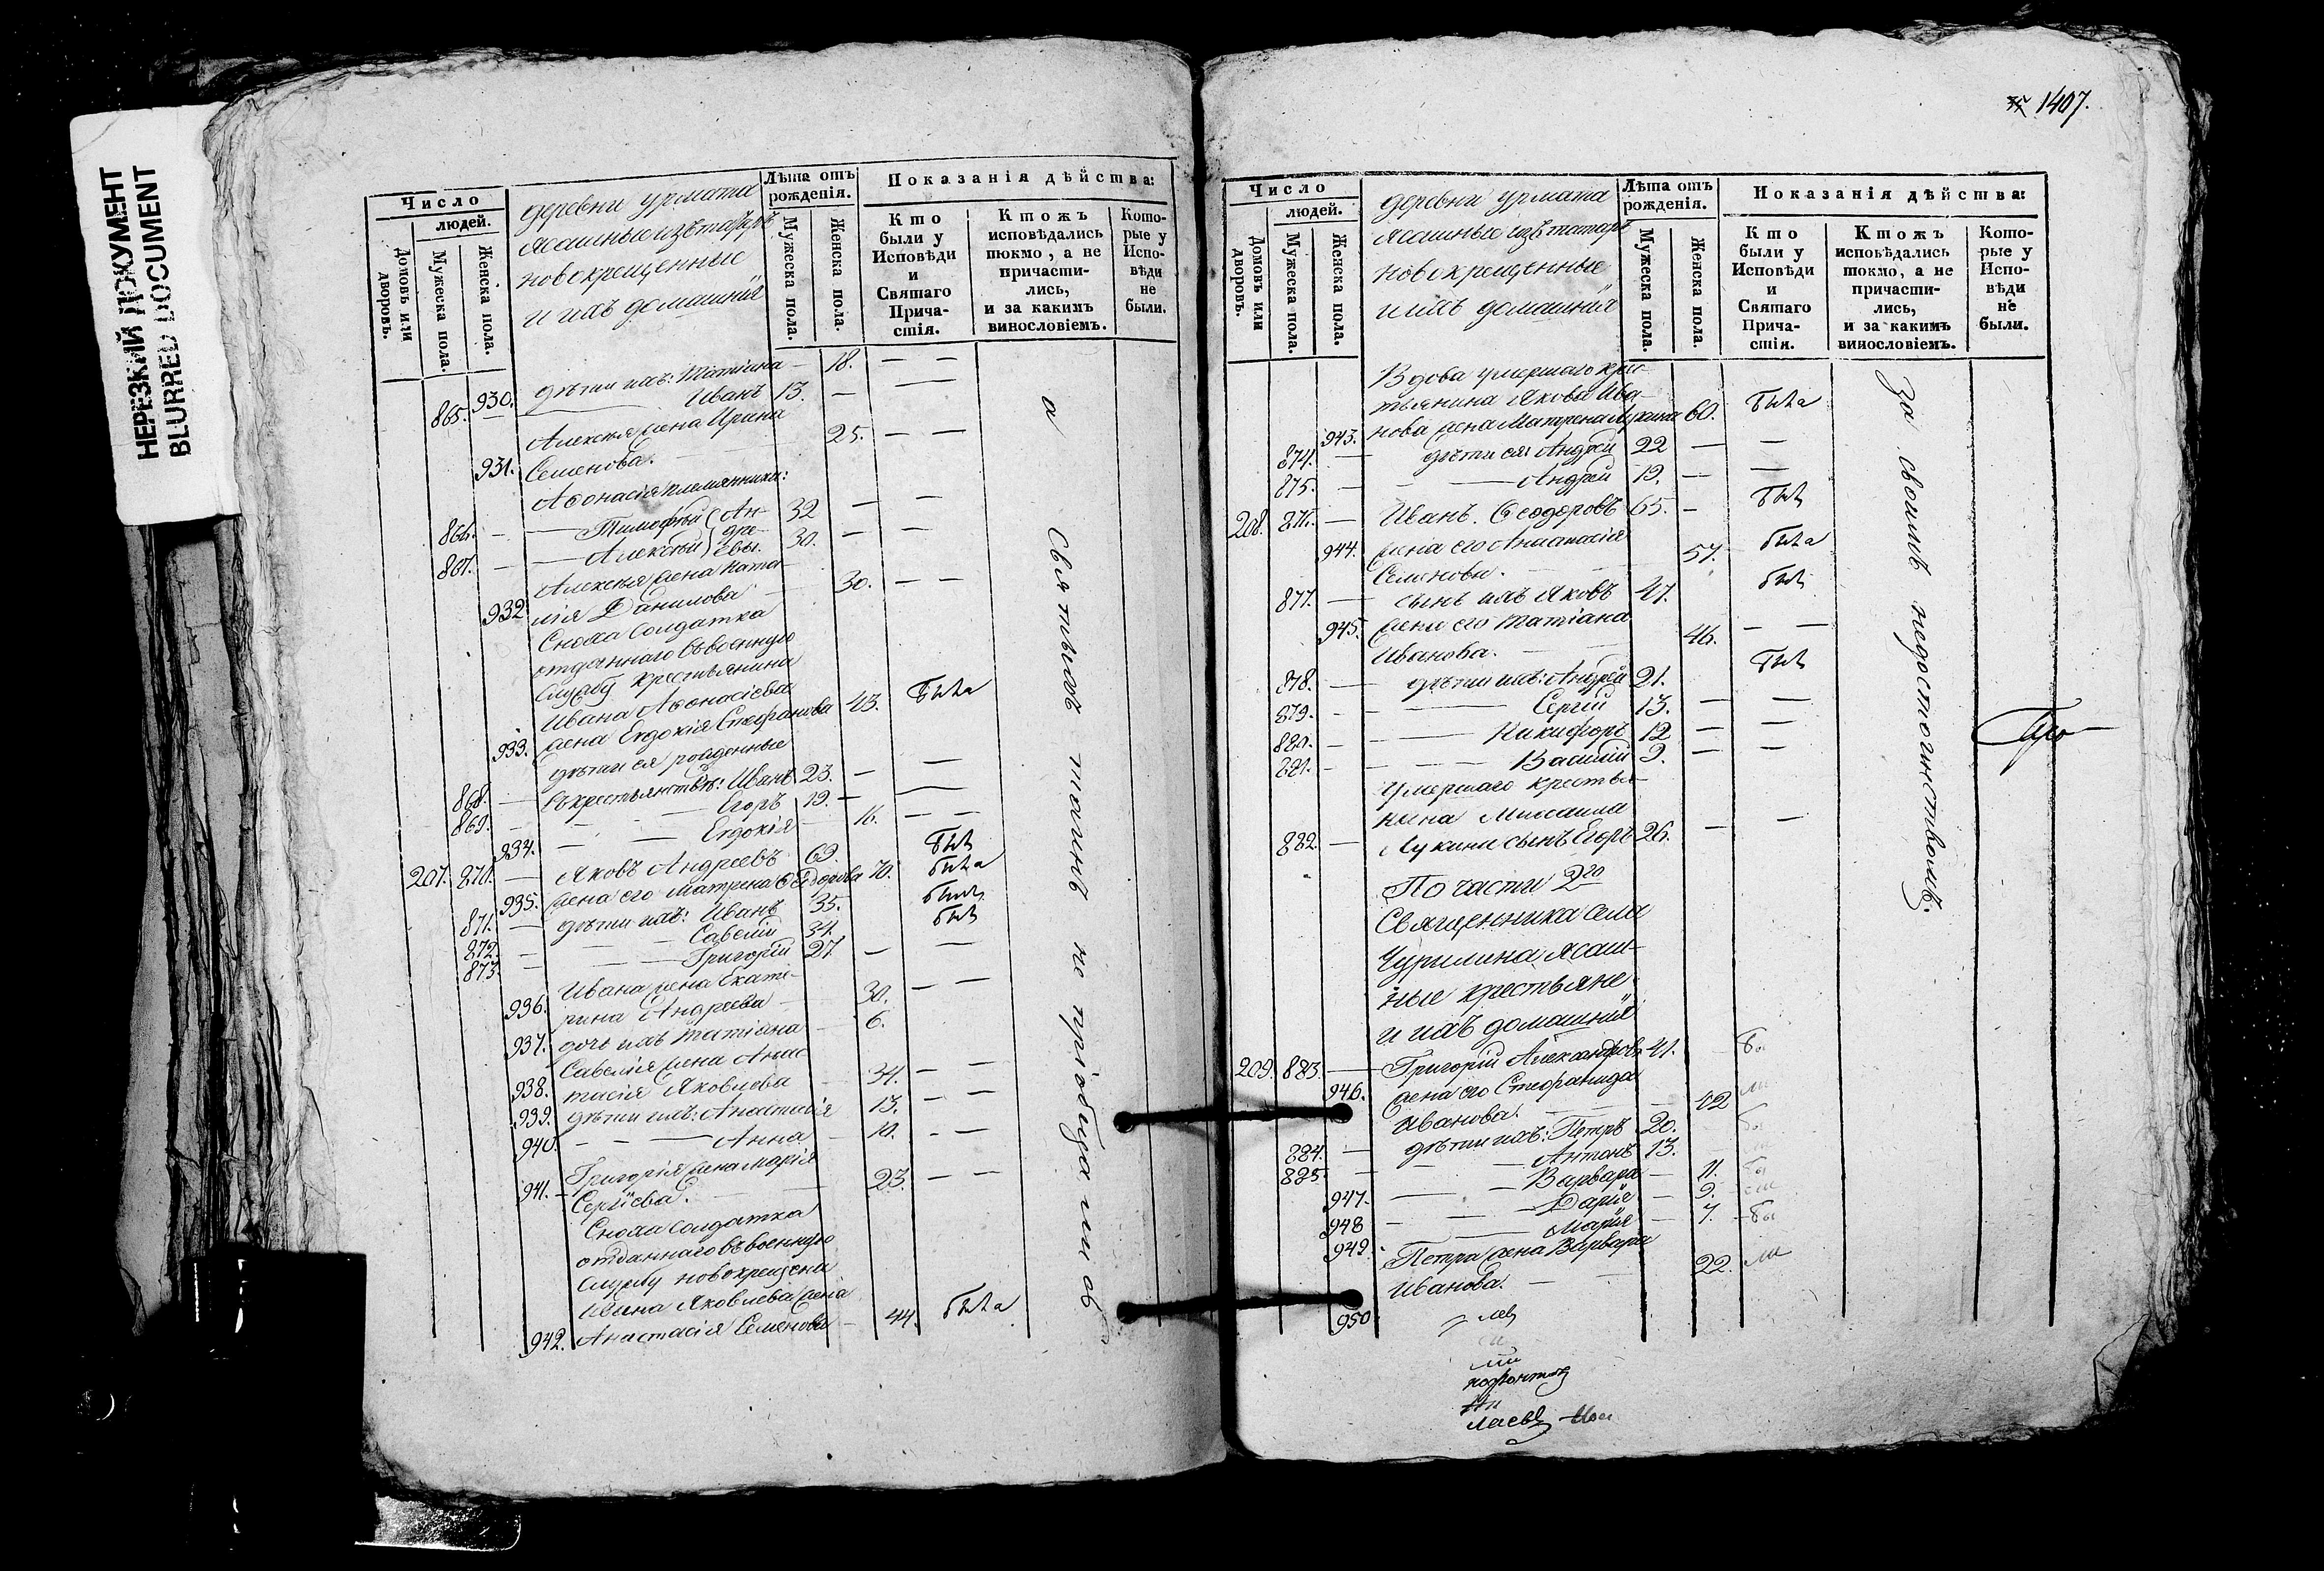 НЕРЕЗКИЙ ДОКУМЕНТ
BLURRED DOCUMENT
Число
людей.
Домовъ или дворовъ.
Мужеска пола.
Женска пола.
деревни урмата
ясашные изъ татаръ
новокрещенные
и ихъ домашнія
Лѣта отъ рожденія.
Мужеска пола.
Женска пола.
Показанія дѣйства:
Кто были у Исповѣди и Святаго Прича-стія.
Ктожъ исповѣдались токмо, а не причасти-лись, и за какимъ винословіемъ.
Кото-рые у Испо-вѣди не были.
930. дѣти ихъ: Татіана — 18. — —
865. — Иванъ 13. — —
Алексѣя жена Ирина
931. Семенова. — — 25. — —
Аѳонасія племянники:
866. — Тимофей Ан- 32 — —
867. — Алексѣй дре-евы. 30. — —
Алексѣя жена Ната-
932 лія Данилова — 30. — —
Сноха солдатка
отданнаго въ военную
службу крестьянина
Ивана Аѳонасіева
933. жена Евдокія Стефанова 43. была
дѣти ея рожденные
868. — въ крестьянствѣ: Иванъ 23. — —
869. — Егоръ 19. — —
934. — Евдокія — 16. — —
207. 870. — Яковъ Андреевъ 69. былъ
935. жена его Матрена Ѳедорова 70. была
871. — дѣти ихъ: Иванъ 35. былъ
872. — Савелій 34. былъ
873. — Григорій 27. — —
Ивана жена Екате-
936. рина Андреева — 30. — —
937. дочь ихъ Татіана — 6.
Савелія жена Анас-
938. тасія Яковлева — 34. — —
939. дѣти ихъ: Анастасія 13. — —
940. — — Анна — 10. — —
Григорія жена Марія
941. Сергіева. — — 23. — —
Сноха солдатка
отданнаго въ военную
службу новокрещена
Яковлева жена
942. Анастасія Семенова — 44. была
а
Святыхъ таинъ не пріобщались
1407.
Число
людей.
Домовъ или дворовъ.
Мужеска пола.
Женска пола.
деревни урмата
ясашные изъ татаръ
новокрещенные
и ихъ домашнія
Лѣта отъ рожденія.
Мужеска пола.
Женска пола.
Показанія дѣйства:
Кто были у Исповѣди и Святаго Прича-стія.
Ктожъ исповѣдались токмо, а не причасти-лись, и за какимъ винословіемъ.
Кото-рые у Испо-вѣди не были.
Вдова умершаго крес-
тьянина Якова Ива-
943. нова жена Матрена 60. была
874. — дѣти ея: Андрей 22 — —
875. — — Андрей 19. — —
208. 876. — Иванъ Ѳеодоровъ 65. — былъ
944. жена его Анастасія
Семенова. — 57. была
877. — сынъ ихъ Яковъ 47. былъ
945. жена его Татіана
Иванова. — — 46. — —
878. — дѣти ихъ: Андрей 21. былъ
879. — — Сергій 13. — —
880. — — Никифоръ 12 — —
881. — — Василій 9. — —
умершаго крестья-
нина Михаила
882. — Лукина сынъ Егоръ 26. — —
По части 2го
Священника села
Чурилина ясаш-
ные крестьяне
и ихъ домашнія
209. 883. — Григорій Александровъ 41. — бы
946. жена его Стефанида
Иванова. — — 42 ли
884. — дѣти ихъ: Петръ 20. бы
885. — — Антонъ 13.
947. — — Варвара — 11. бы
948 — — Дарія — 9. ли
949. — Марія — 7. — бы
Петра жена Варвара
950 Иванова. — — 22. ли
за своимъ недостоинствомъ.